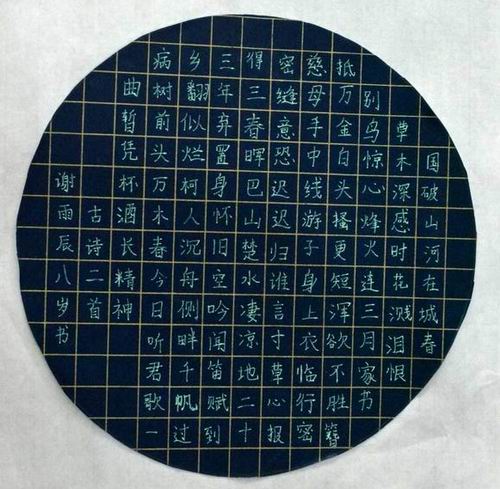 国破山河在城春
草木深感时花溅泪恨
别鸟惊心烽火连三月家书
抵万金白头搔更短浑欲不胜簪
慈母手中线游子身上衣临行密
密缝意恐迟迟归谁言寸草心报
得三春晖巴山楚水凄凉地二十
三年弃置身怀旧空吟闻笛赋到
乡翻似烂柯人沉舟侧畔千帆过
病树前头万木春今日听君歌一
曲暂凭杯酒长精神
古诗二首
谢雨辰八岁书